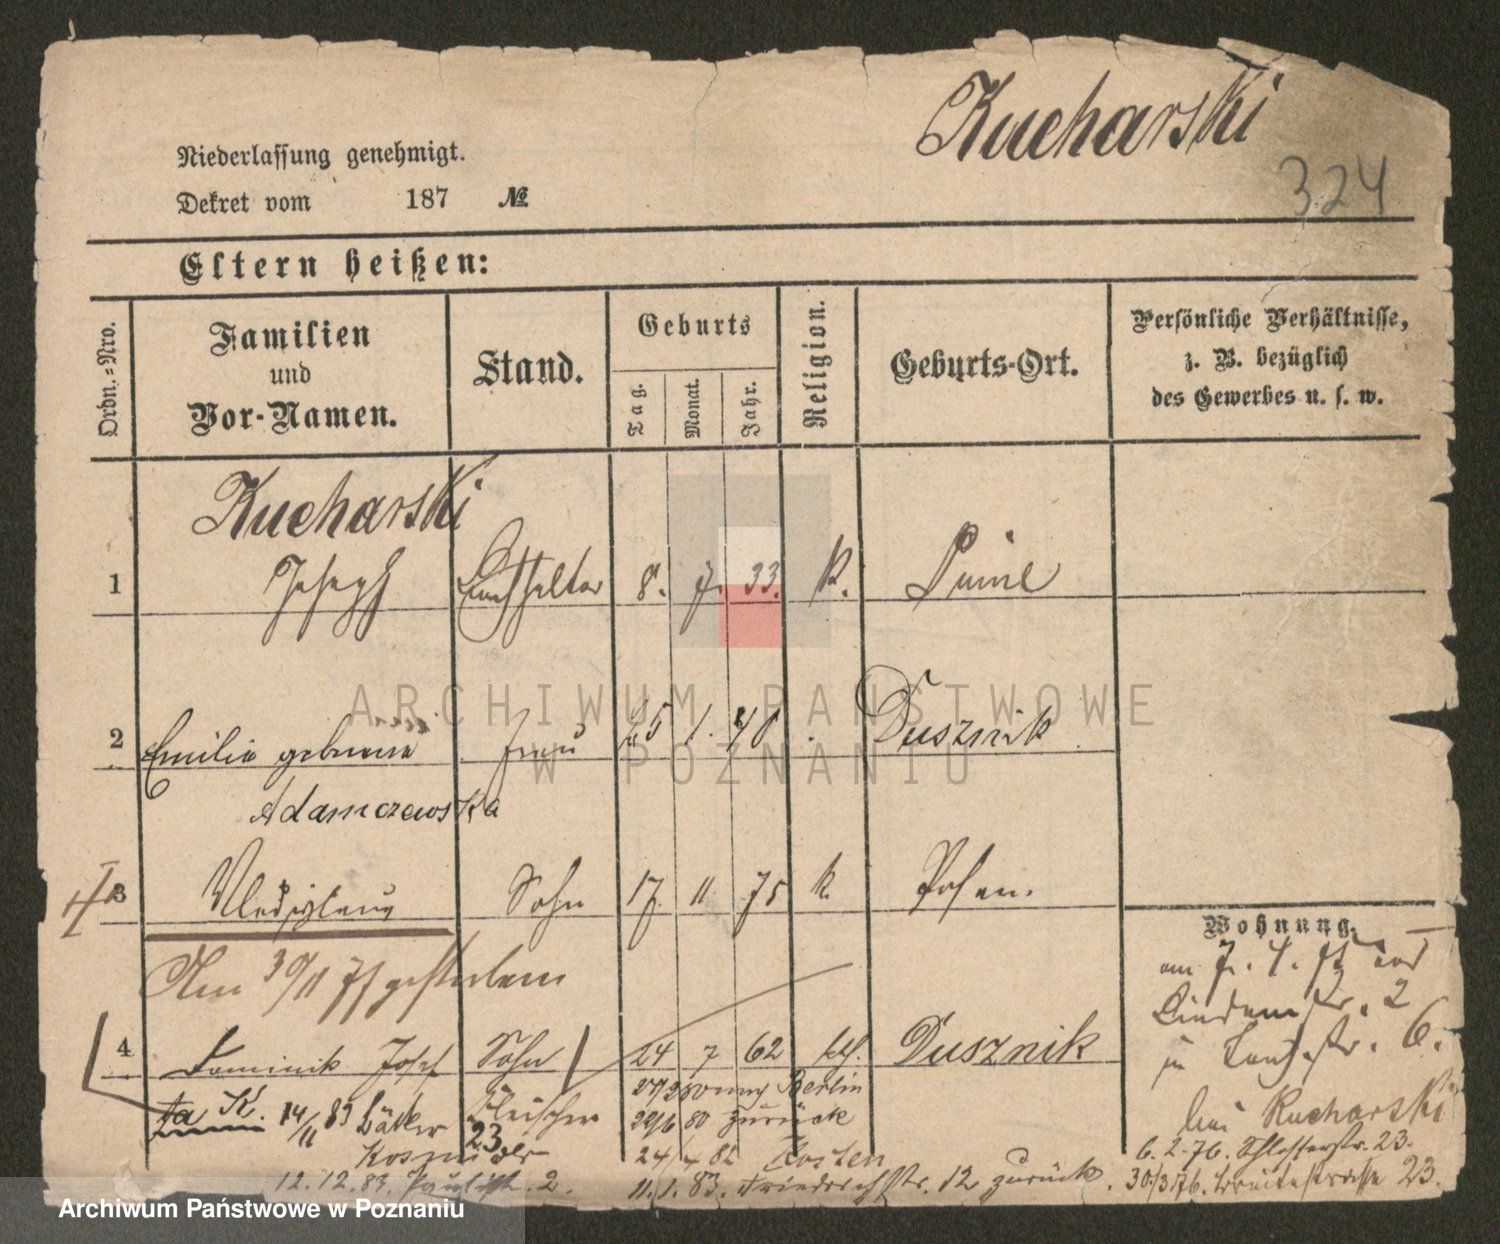 Kucharski
324
Niederlassung genehmigt.
Dekret vom 187 №
Eltern heißen:
Ordn.-Nro.
Familien und Vor-Namen.
Stand.
Geburts
Tag. Monat. Jahr.
Religion.
Geburts-Ort.
Persönliche Verhältnisse, z. B. bezüglich des Gewerbes u. s. w.
Kucharski
1 Joseph Buchhalter 8. 7. 33. k.
2 Emilie geborene Frau 25 1. 48 Dusznik
Adamczewska
3 Sohn 17. 11. 75 k. Posen.
Am 30/11 75 gestorben
Wohnung.
am 7. 4. 75 von
Lindenstr. 2
4 Dominik Josef Sohn 24 7 62 kth. Dusznik
in Langestr. 6.
27/2 80 nach Berlin
bei Kucharski
ta K. 14/11 83 Bäcker Fleischer 29/6 80 zurück
23
6. 2. 76. Schlosserstr. 23.
24/4 82 Kosten
30/3 76. Breitestrasse 23.
12. 12. 83. Paulist. 2. 11. 1. 83. Friedrichstr. 12 zurück.
ARCHIWUM PAŃSTWOWE
W POZNANIU
Archiwum Państwowe w Poznaniu